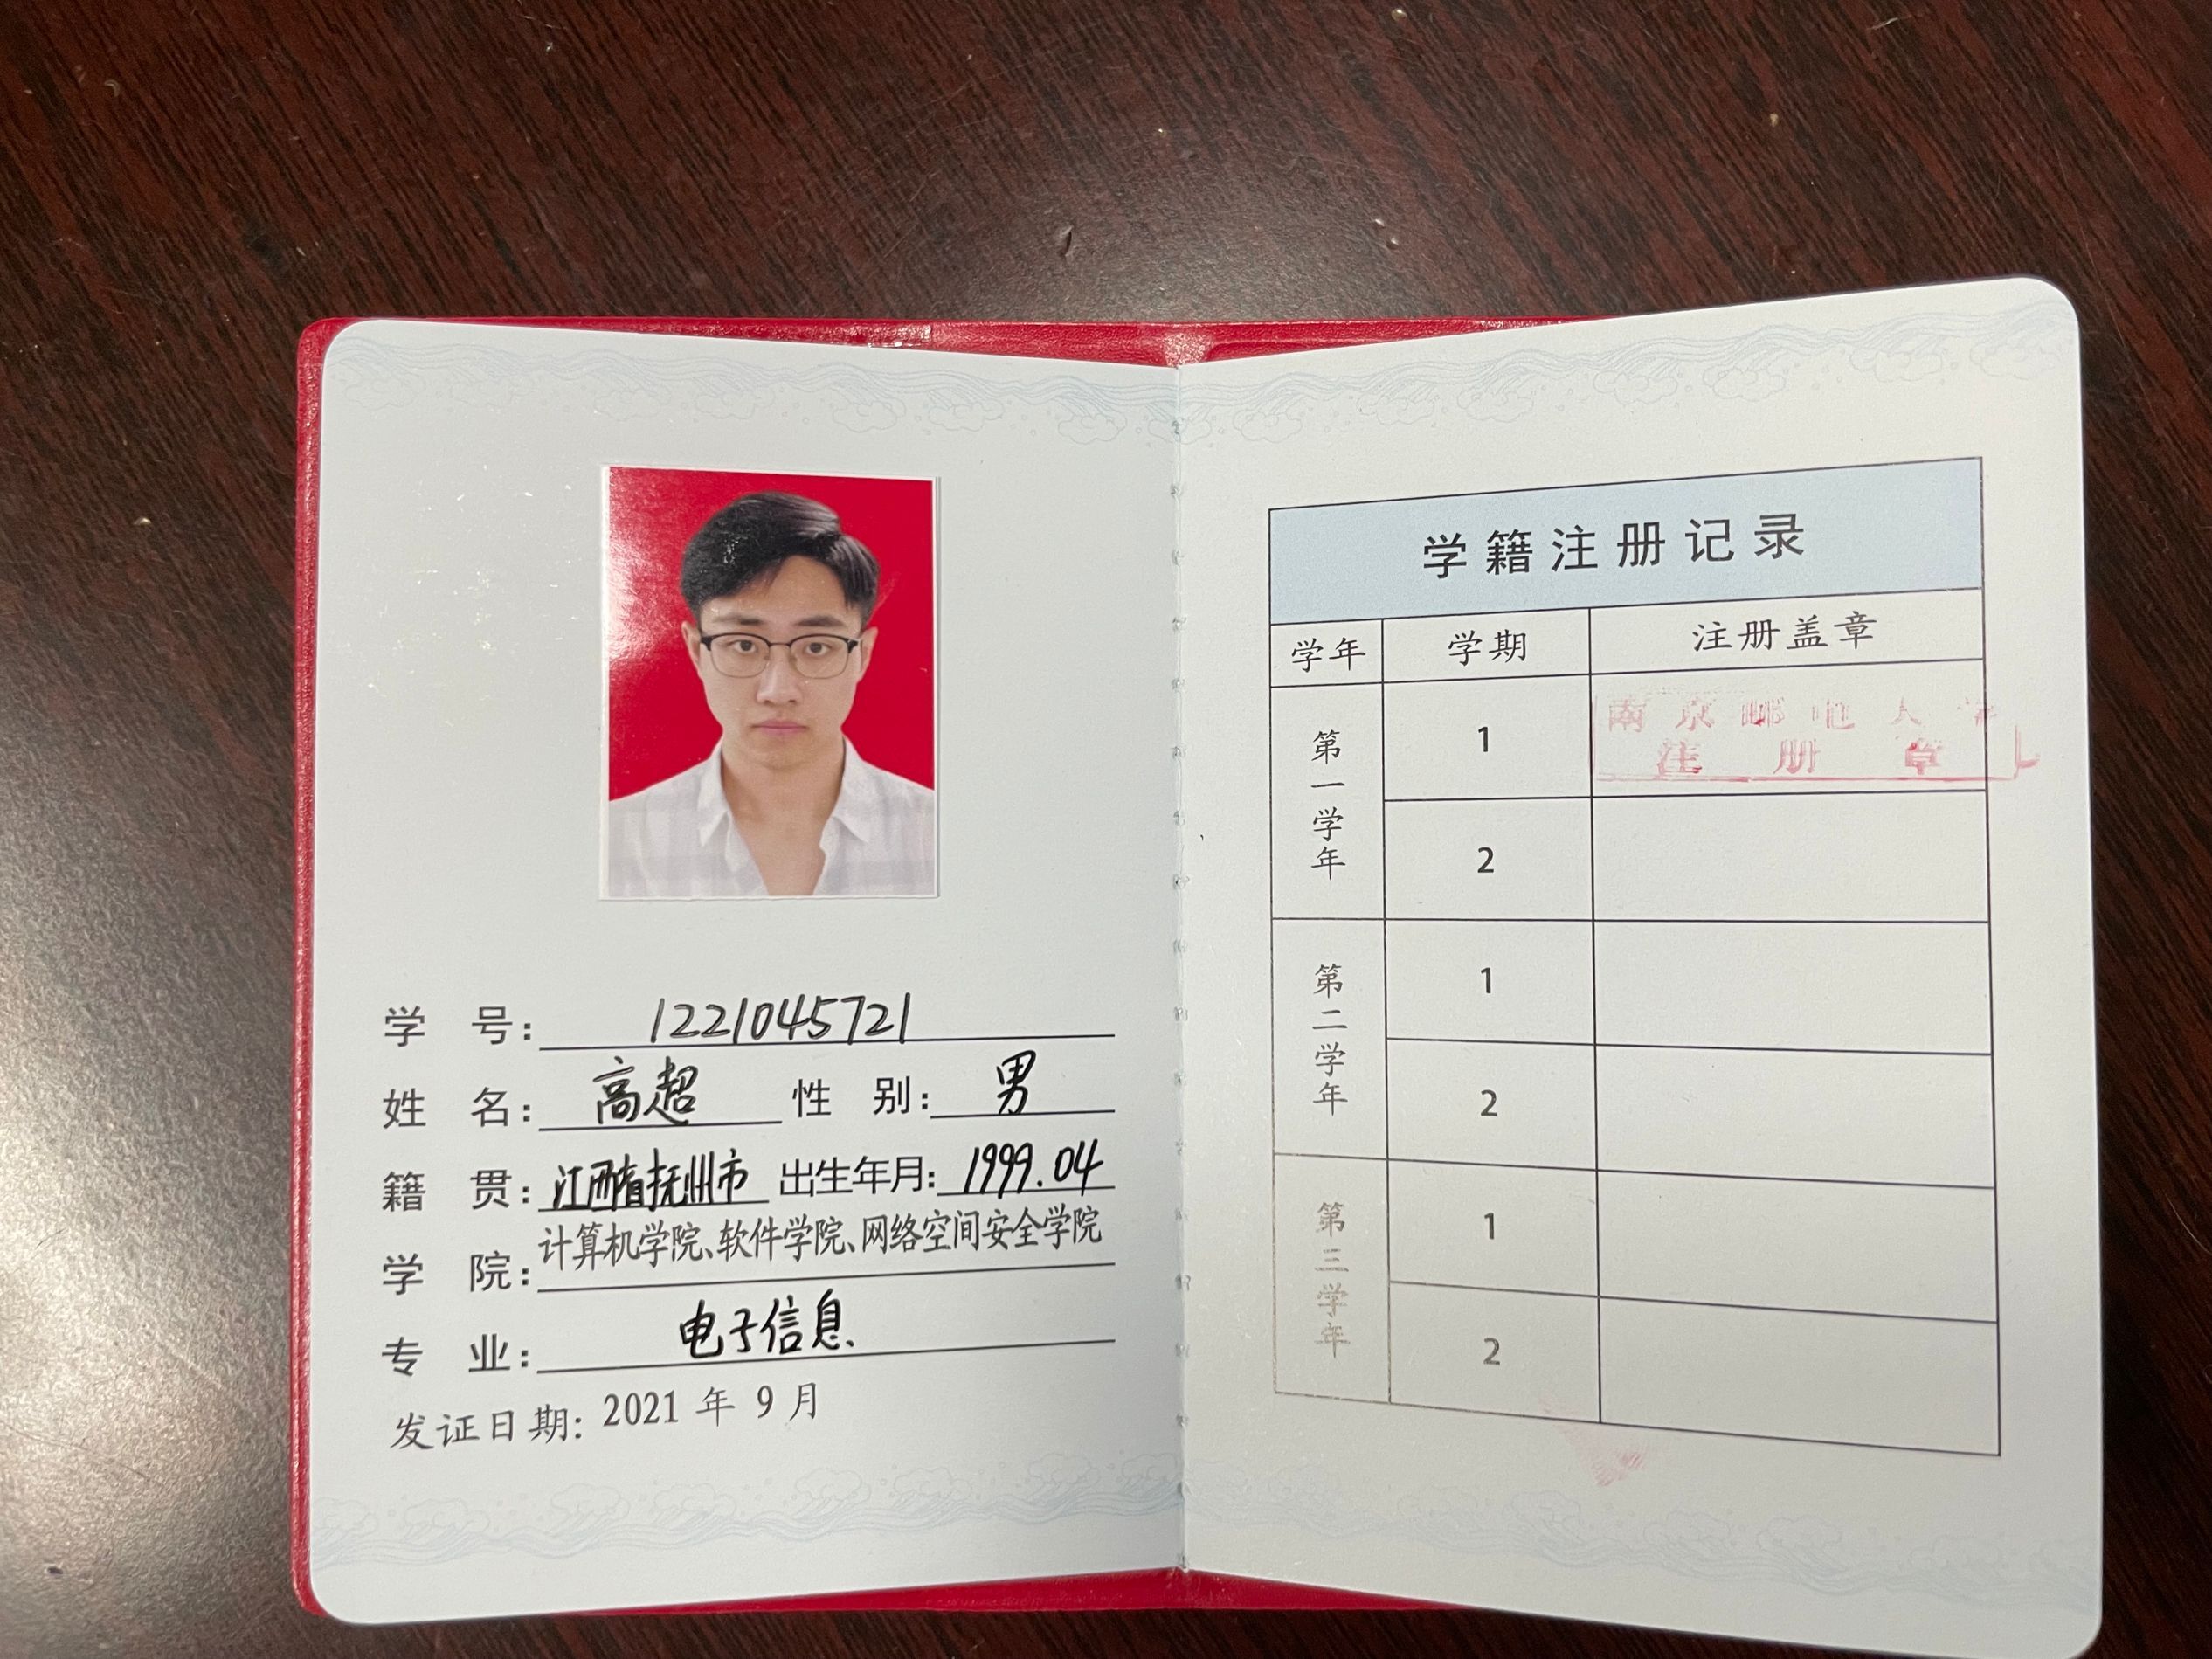 学 号: 1221045721
姓 名: 高超 性 别: 男
籍 贯: 江西省抚州市 出生年月: 1999.04
学 院: 计算机学院、软件学院、网络空间安全学院
专 业: 电子信息
发证日期: 2021 年 9 月
学籍注册记录
学年 学期 注册盖章
第一学年 1 南京邮电大学
注册章
2
第二学年 1
2
第三学年 1
2